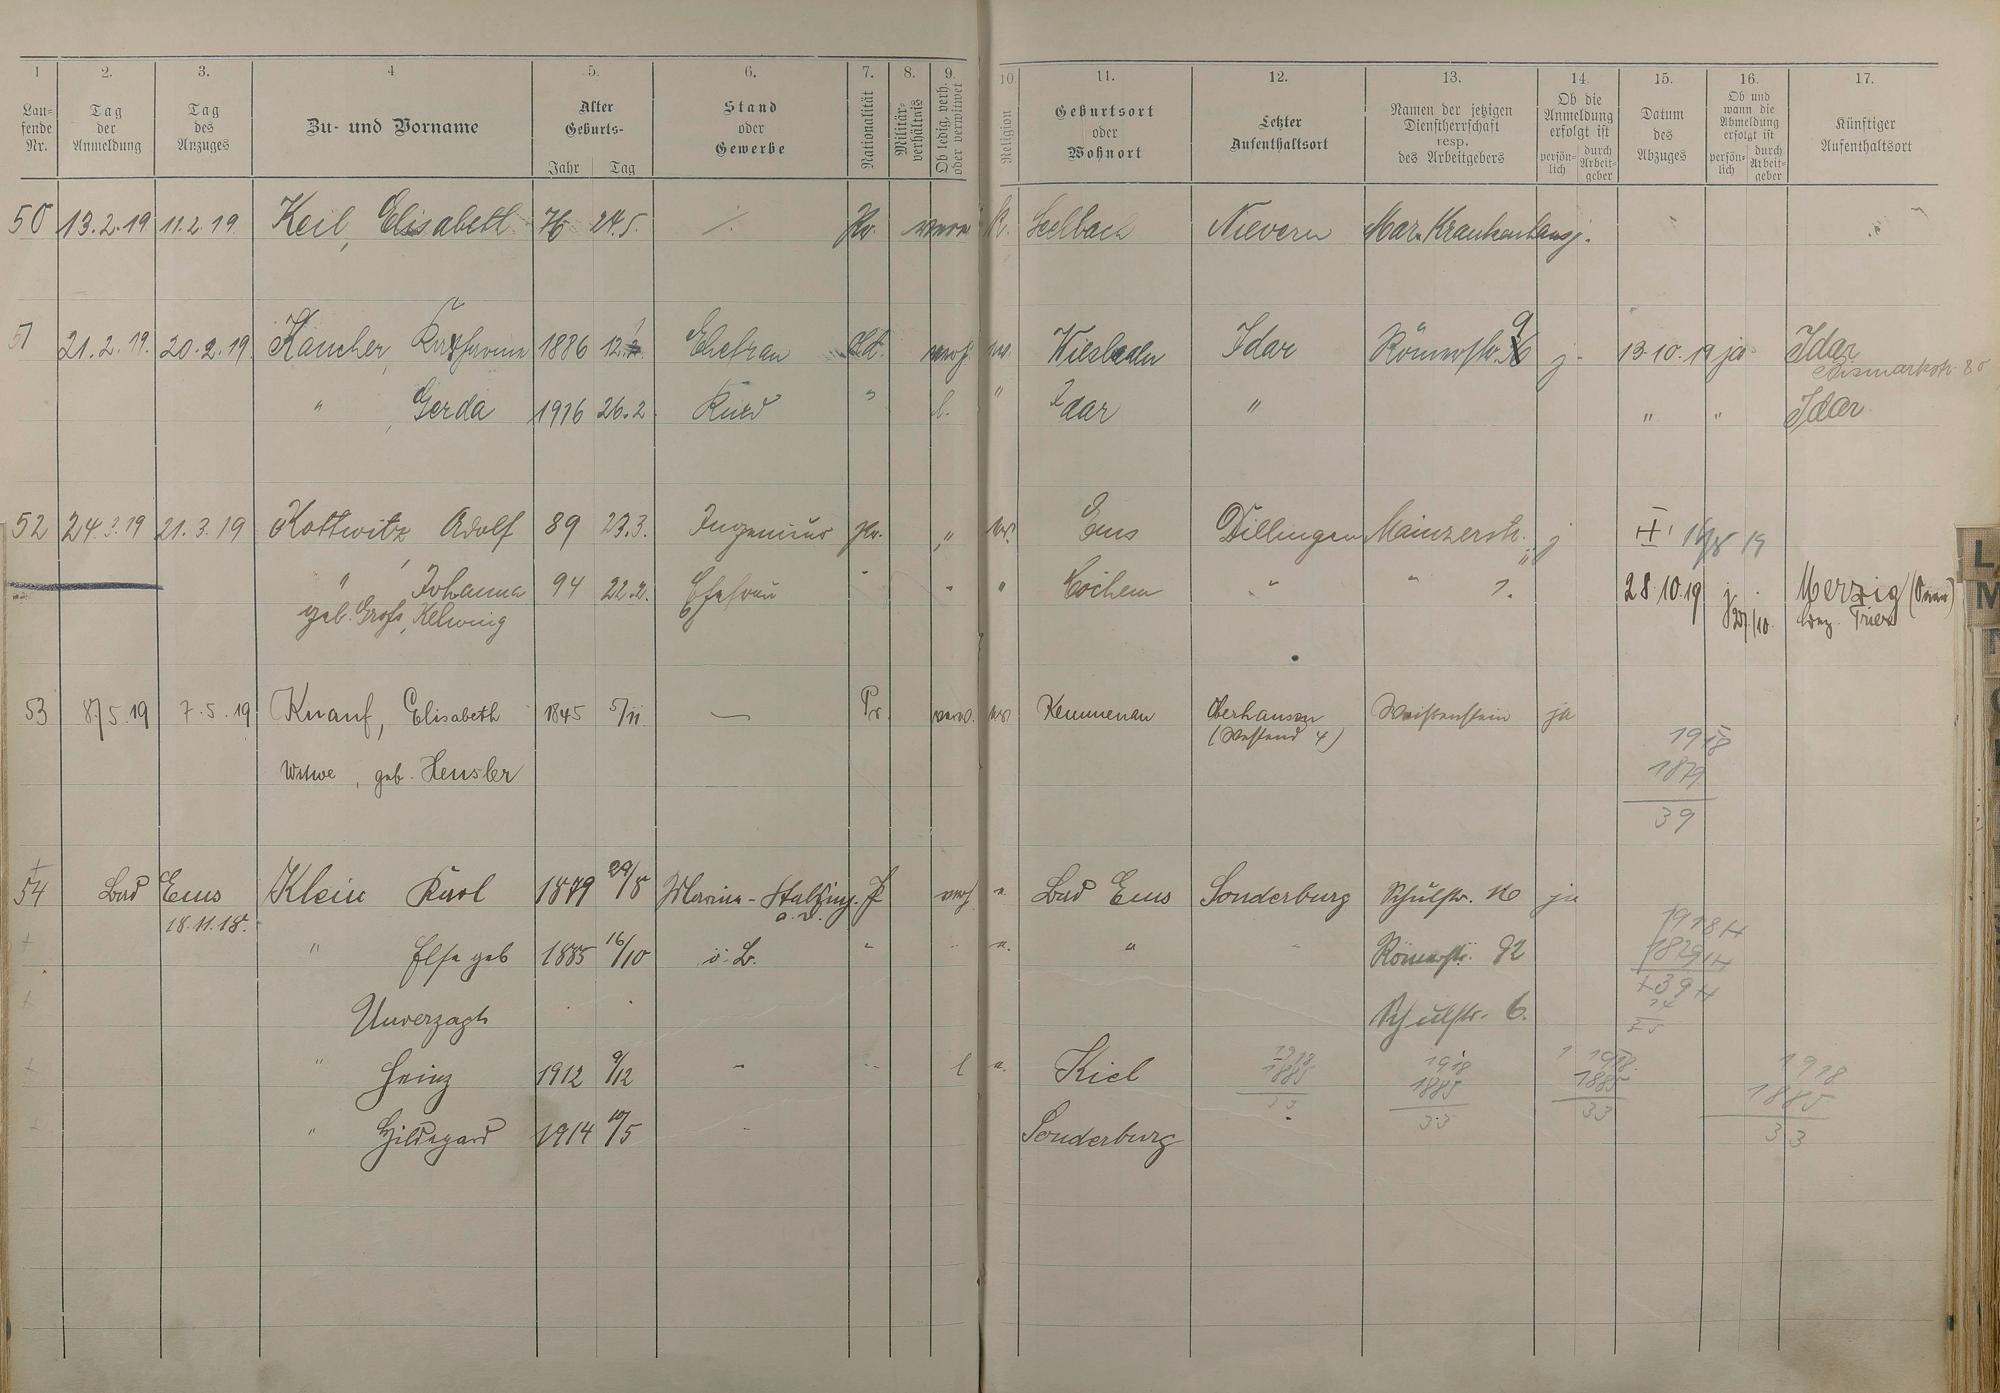 1 2. 3. 4 5. 6. 7. 8. 9. 10 11. 12. 13. 14. 15. 16. 17.
Lau-
fende
Nr.
Tag
der
Anmeldung
Tag
des
Anzuges
Zu- und Vorname
Alter
Geburts-
Jahr Tag
Stand
oder
Gewerbe
Nationalität
Militär-
verhältnis
Ob ledig, verh.
oder verwitwet
Religion
Geburtsort
oder
Wohnort
Letzter
Aufenthaltsort
Namen der jetzigen
Dienstherrschaft
resp.
des Arbeitgebers
Ob die
Anmeldung
erfolgt ist
persön-
lich
durch
Arbeit-
geber
Datum
des
Abzuges
Ob und
wann die
Abmeldung
erfolgt ist
persön-
lich
durch
Arbeit-
geber
Künftiger
Aufenthaltsort
50 13.2.19 11.2.19 Keil, Elisabeth 76 24.5. Pr. k. Seelbach Nievern Mar. Krankenhaus j.
51 21.2.19. 20.2.19 Kaucher, 1886 Ehefrau verh. Wiesbaden Idar Römerstr. 9 j. 13.10.19 ja Idar
Bismarkstr. 80
" Gerda 1916 26.2 Kind " l. " Idar " " " Idar
52 24.3.19 21.3.19 Kottwitz, Adolf 89 23.3. Ingenieur Pr. " Ems Dillingen Mainzerstr. j 19
" Johanna 94 22.2. Ehefrau " " " Cochem " " 28.10.19 j Merzig
geb. Groß, Helwing 27/10. Bez. Trier
53 8/5.19 7.5.19 Knauf, Elisabeth 1845 5/11 — Pr verw. Kemmenau Oberhausen Weißenstein ja
(Westend 4)
Witwe, geb. Hensler
1918
1879
39
54 Bad Ems Klein Karl 1879 29/8 Marine- P verh. Bad Ems Sonderburg Schulstr. ja
18.11.18. a.D.
" Else geb 1885 16/10 o.B. " " " Römerstr. 82
Unverzagt Schulstr. 6.
" Heinz 1912 9/12 - l Kiel
" Hildegard 1914 10/5 - Sonderburg
1918
1885
33
1918
1885
33
1918
1885
33
1918
1885
33